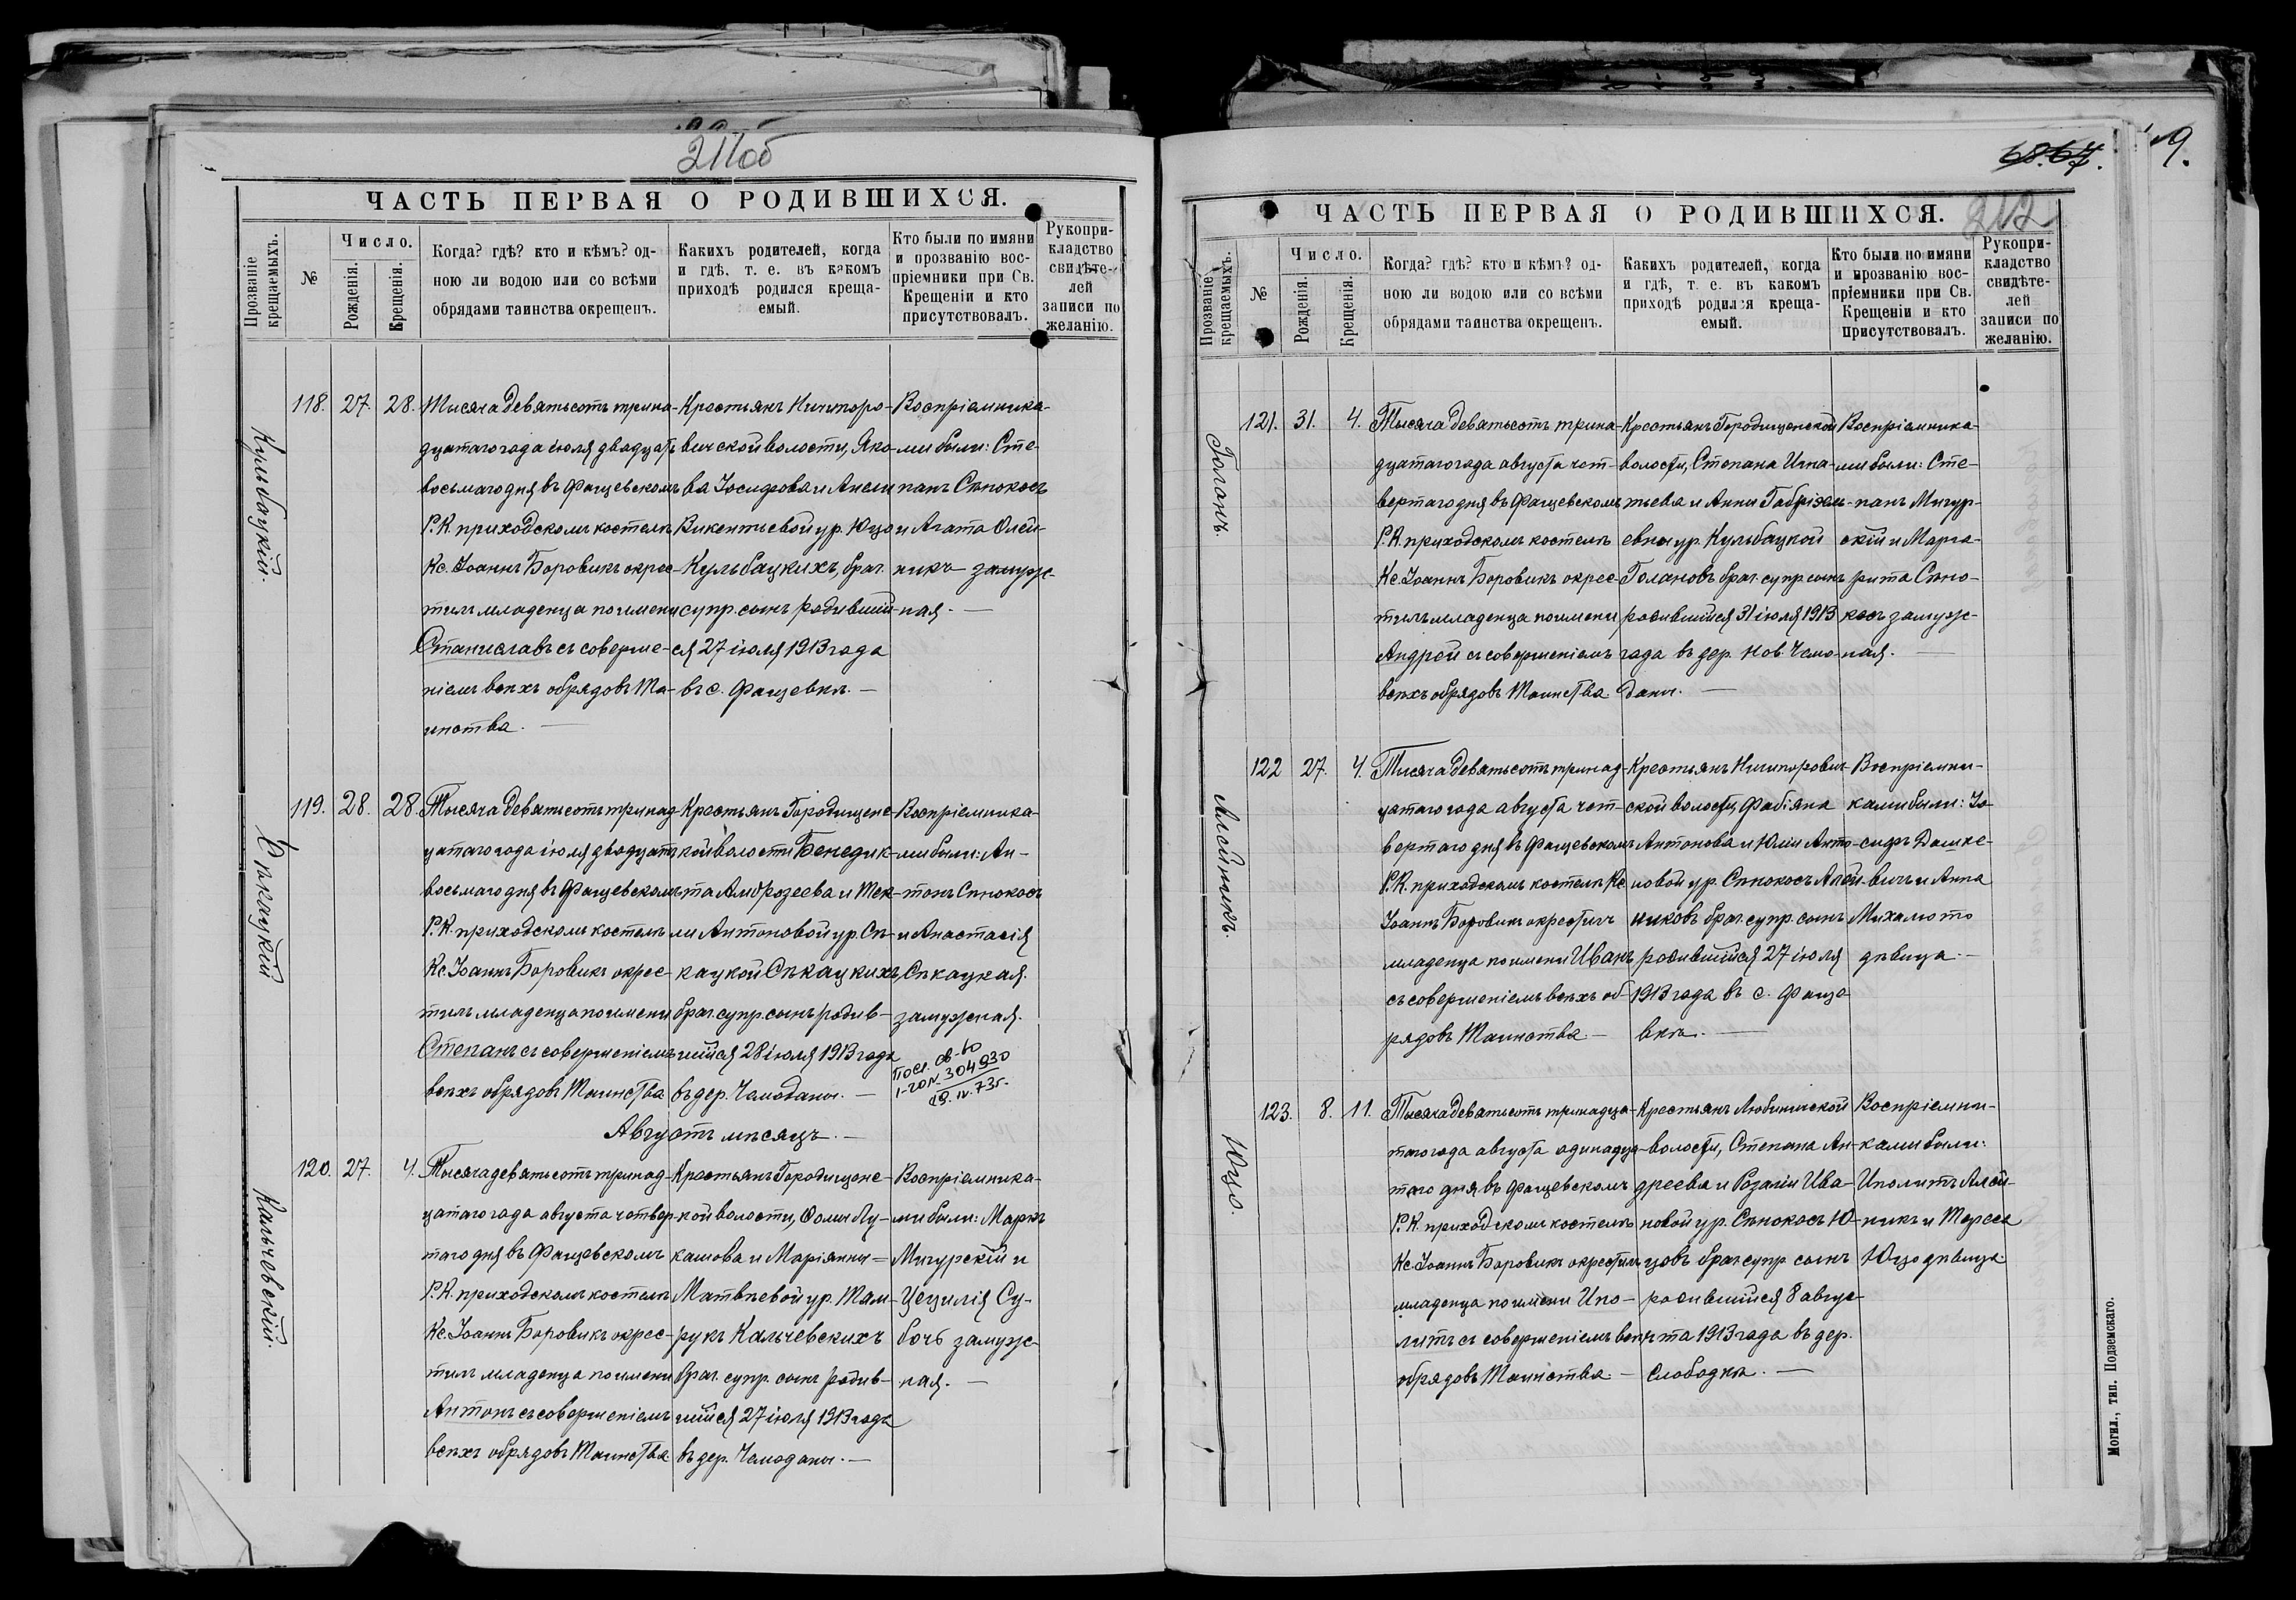 211об
ЧАСТЬ ПЕРВАЯ О РОДИВШИХСЯ.
Прозваніе крещаемыхъ.
№
Число.
Рожденія.
Крещенія.
Когда? гдѣ? кто и кѣмъ? од-
ною ли водою или со всѣми
обрядами таинства окрещенъ.
Какихъ родителей, когда
и гдѣ, т. е. въ какомъ
приходѣ родился креща-
емый.
Кто были по имяни
и прозванію вос-
пріемники при Св.
Крещеніи и кто
присутствовалъ.
Рукопри-
кладство
свидѣте-
лей
записи по
желанію.
Кульбацкій.
118. 27. 28.
Тысяча девятьсотъ трина-
дцатаго года іюля двадцать
восьмаго дня въ Фащевскомъ
Р.К. приходскомъ костелѣ
Кс. Іоаннъ Боровикъ окрес-
тилъ младенца по имени
Станиславъ съ соверше-
ніемъ всѣхъ обрядовъ Та-
инства. —
Крестьянъ Ничипоро-
вичской волости, Яко-
ва Іосифова и Анели
Викентьевой ур. Юцо
Кульбацкихъ, брач.
супр. сынъ родивший-
ся 27 іюля 1913 года
въ с. Фащевкѣ. —
Воспріемника-
ми были: Сте-
панъ Сѣнокосъ
и Агата Олей-
никъ замуж-
ная. —
Сѣкацкій
119. 28. 28.
Тысяча девятьсотъ тринад-
цатаго года іюля двадцать
восьмаго дня въ Фащевскомъ
Р.К. приходскомъ костелѣ
Кс. Іоаннъ Боровикъ окрес-
тилъ младенца по имени
Степанъ съ совершеніемъ
всѣхъ обрядовъ Таинства
Крестьянъ Городищенс-
кой волости Бенедик-
та Амброзеева и Тек-
ли Антоновой ур. Сѣ-
кацкой Сѣкацкихъ,
брач. супр. сынъ родив-
шійся 28 іюля 1913 года
въ дер. Чемоданы. —
Воспріемника-
ми были: Ан-
тонъ Сѣнокосъ
и Анастасія
Сѣкацкая
замужная.
Посл. св-во
304930
19.IV.73г.
Августъ мѣсяцъ. —
Кальчевскій.
120. 27. 4.
Тысяча девятьсотъ тринад-
цатаго года августа четвер-
таго дня въ Фащевскомъ
Р.К. приходскомъ костелѣ
Кс. Іоаннъ Боровикъ окрес-
тилъ младенца по имени
Антонъ съ совершеніемъ
всѣхъ обрядовъ Таинства
Крестьянъ Городищенс-
кой волости, Ѳомы Лу-
кашова и Маріянны
Матвѣевой ур. Там-
рукъ Кальчевскихъ
брач. супр. сынъ родив-
шійся 27 іюля 1913 года
въ дер. Чемоданы. —
Воспріемника-
ми были: Маркъ
Мигурскій и
Цецилія Су-
бочь замуж-
ная. —
68. 67.
9.
212
ЧАСТЬ ПЕРВАЯ О РОДИВШИХСЯ.
Прозваніе крещаемыхъ.
№
Число.
Рожденія.
Крещенія.
Когда? гдѣ? кто и кѣмъ? од-
ною ли водою или со всѣми
обрядами таинства окрещенъ.
Какихъ родителей, когда
и гдѣ, т. е. въ какомъ
приходѣ родился креща-
емый.
Кто были по имяни
и прозванію вос-
пріемники при Св.
Крещеніи и кто
присутствовалъ.
Рукопри-
кладство
свидѣте-
лей
записи по
желанію.
121. 31. 4.
Тысяча девятьсотъ трина-
дцатаго года августа чет-
вертаго дня въ Фащевскомъ
Р.К. приходскомъ костелѣ
Кс. Іоаннъ Боровикъ окрес-
тилъ младенца по имени
Андрей съ совершеніемъ
всѣхъ обрядовъ Таинства
Крестьянъ Городищенской
волости, Степана Игна-
тьева и Анны Габріэль-
евны ур. Кульбацкой
брач. супр. сынъ
родившійся 31 іюля 1913
года въ дер. Нов. Чемо-
даны. —
Воспріемника-
ми были: Сте-
панъ Мигур-
скій и Марга-
рита Сѣно-
косъ замуж-
ная. —
Алейникъ.
122 27. 4.
Тысяча девятьсотъ тринад-
цатаго года августа чет-
вертаго дня въ Фащевскомъ
Р.К. приходскомъ костелѣ Кс.
Іоаннъ Боровикъ окрестилъ
младенца по имени Иванъ
съ совершеніемъ всѣхъ об-
рядовъ Таинства. —
Крестьянъ Ничипорович-
ской волости, Фабіяна
Антонова и Юліи Анто-
новой ур. Сѣнокосъ Алей-
никовъ брач. супр. сынъ
родившійся 27 іюля
1913 года въ с. Фаще-
вкѣ. —
Воспріемни-
ками были: Іо-
сифъ Дашке-
вичъ и Анна
Михалюто
дѣвица. —
Юцо.
123. 8. 11.
Тысяча девятьсотъ тринадца-
таго года августа одинадца-
таго дня въ Фащевскомъ
Р.К. приходскомъ костелѣ
Кс. Іоаннъ Боровикъ окрестилъ
младенца по имени Ипо-
литъ съ совершеніемъ всѣхъ
обрядовъ Таинства —
Крестьянъ Любиничской
волости, Степана Ан-
дреева и Розаліи Ива-
новой ур. Сѣнокосъ Ю-
цовъ брач. супр. сынъ
родившійся 8 авгус-
та 1913 года въ дер.
Слободкѣ. —
Воспріемни-
ками были:
Иполитъ Алей-
никъ и Тереса
Юцо дѣвица.
Могил., тип. Подземскаго.